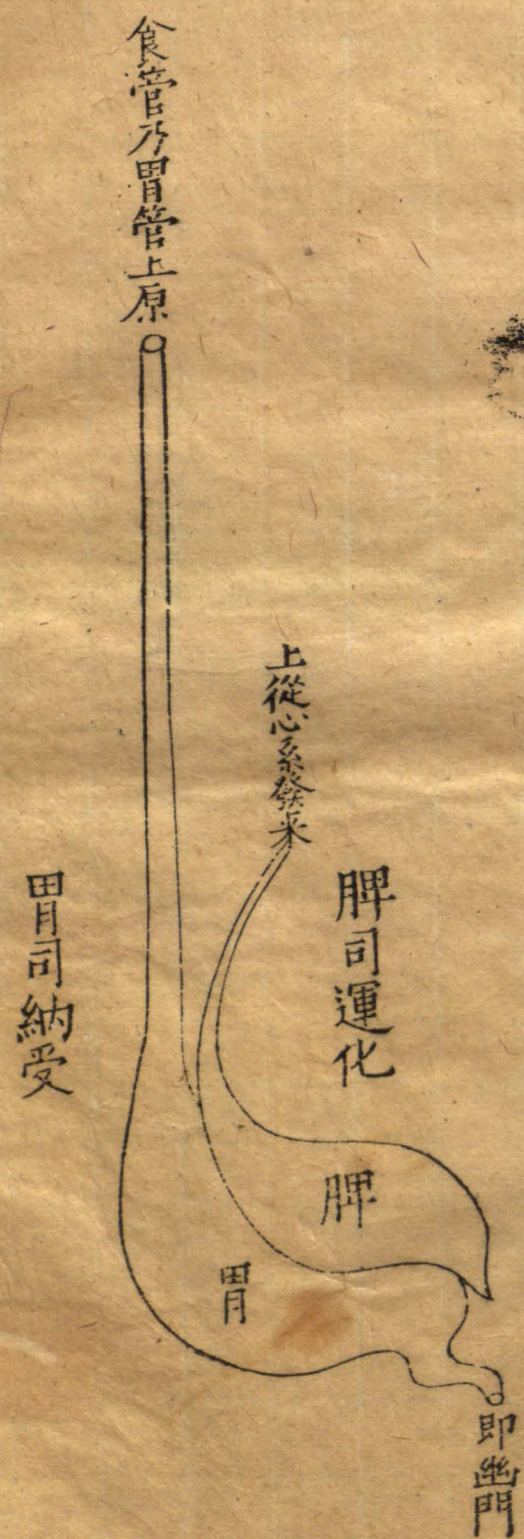 食管乃胃管上原
上從心系發来
脾司運化
胃司納受
脾
胃
即幽門